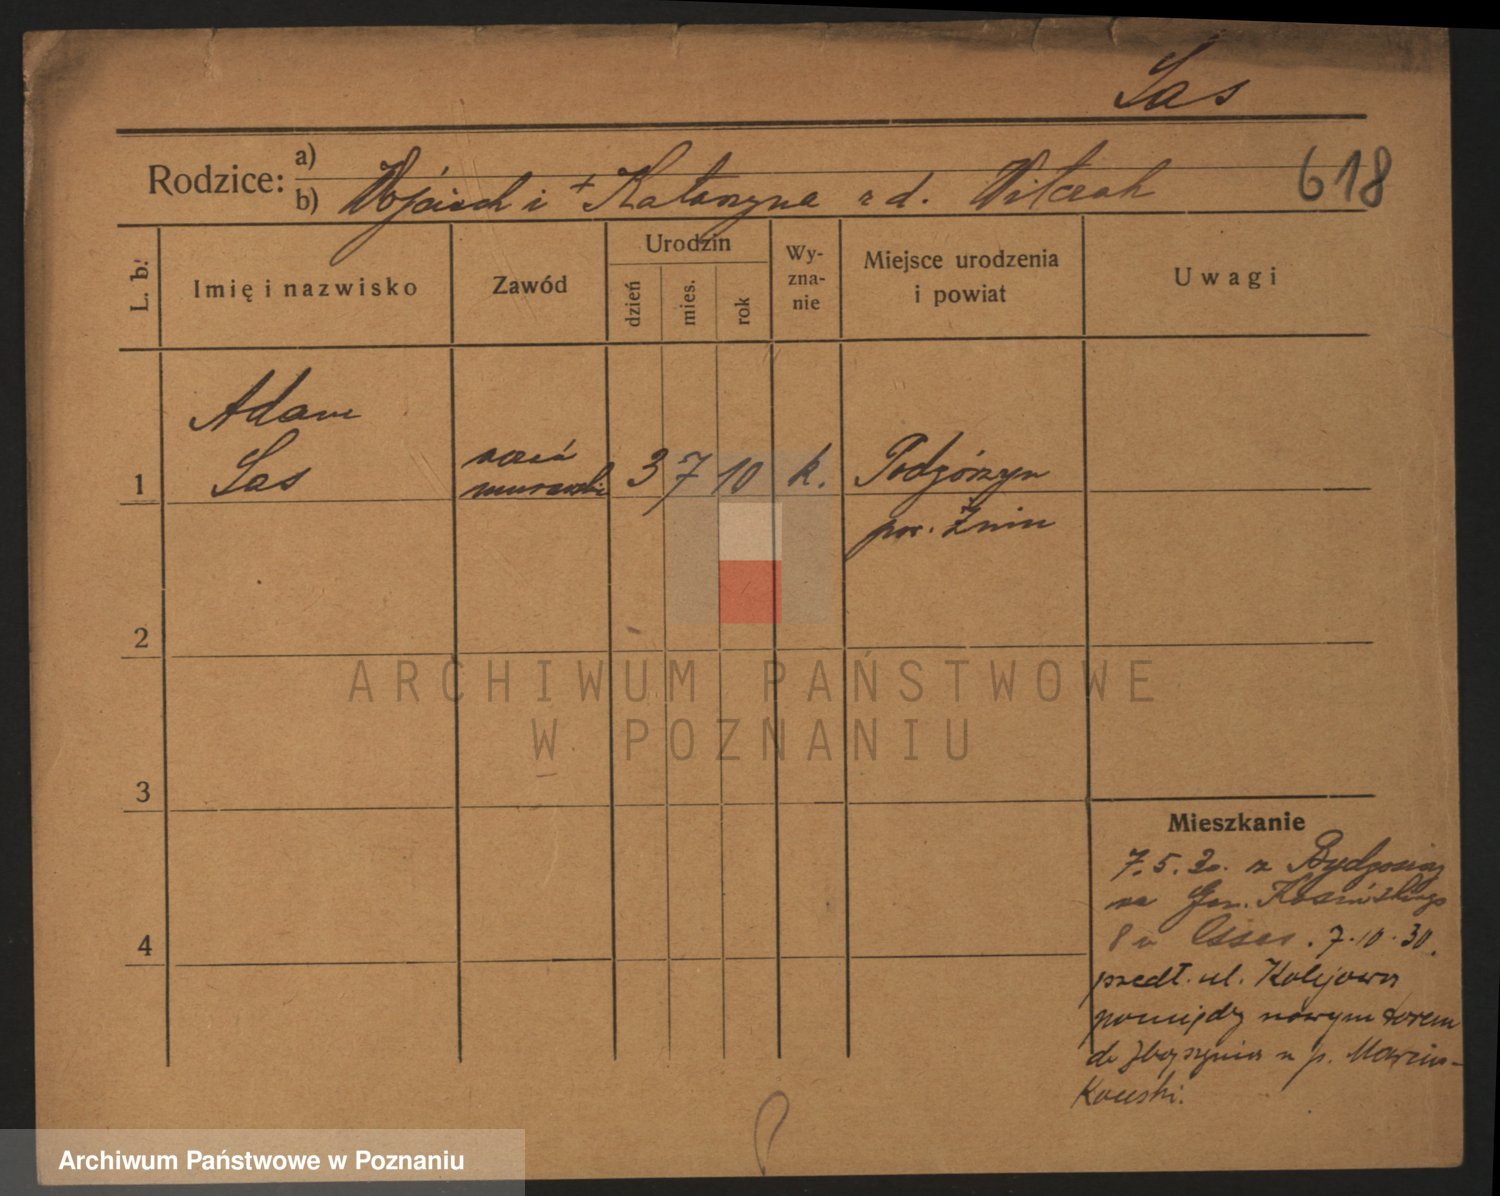 Sas
Rodzice: a)
b) Wojciech i + Katarzyna z d. Witczak
618
L. b.
Imię i nazwisko
Zawód
Urodzin
dzień
mies.
rok
Wy-
zna-
nie
Miejsce urodzenia
i powiat
Uwagi
Adam
1 Sas
uczeń
murarski
3 7 10 k. Podgórzyn
pow. Żnin
2
3
4
Mieszkanie
7.5.30. z Bydgoszcz
na Gen. Kosińskiego
8 u 7.10.30.
przedł. ul. Kolejowa
pomiędzy nowym torem
do Zbąszynia u p. Marcin-
kowski.
ARCHIWUM PAŃSTWOWE
W POZNANIU
Archiwum Państwowe w Poznaniu